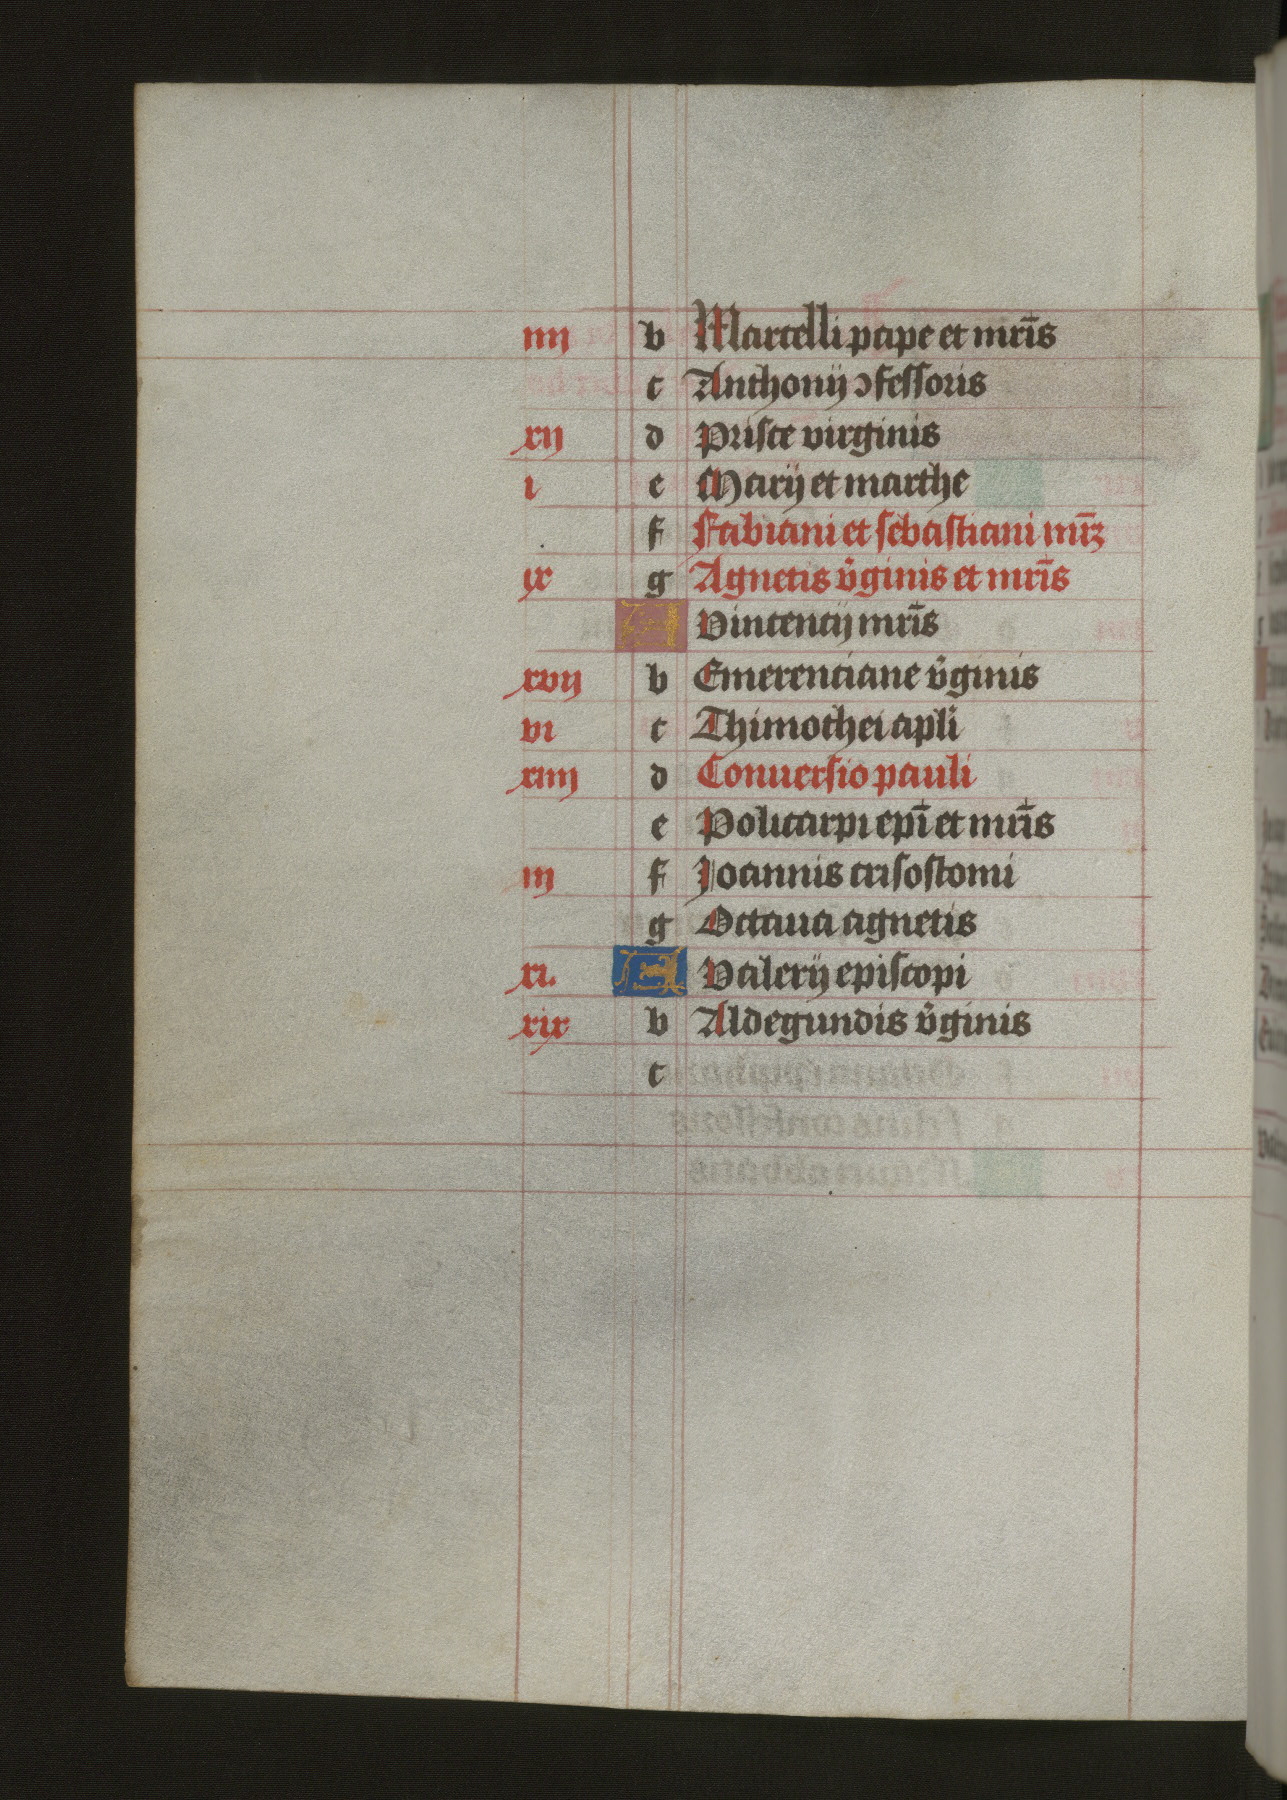 iiij b Marcelli pape et mr̄is
c Anthonij ↄfessoris
xij d Prisce virginis
i e Marij et marthe
f Fabiani et sebastiani mr̄ꝝ
ix g Agnetis v̄ginis et mr̄is
A Vincencij mr̄is
xvij b Emerenciane v̄ginis
vi c Thimothei apli̅
xiiij d Conuersio pauli
e Policarpi epi̅ et mr̄is
iij f Joannis crisostomi
g Octaua agnetis
xi. A Valerij episcopi
xix b Aldegundis v̄ginis
c